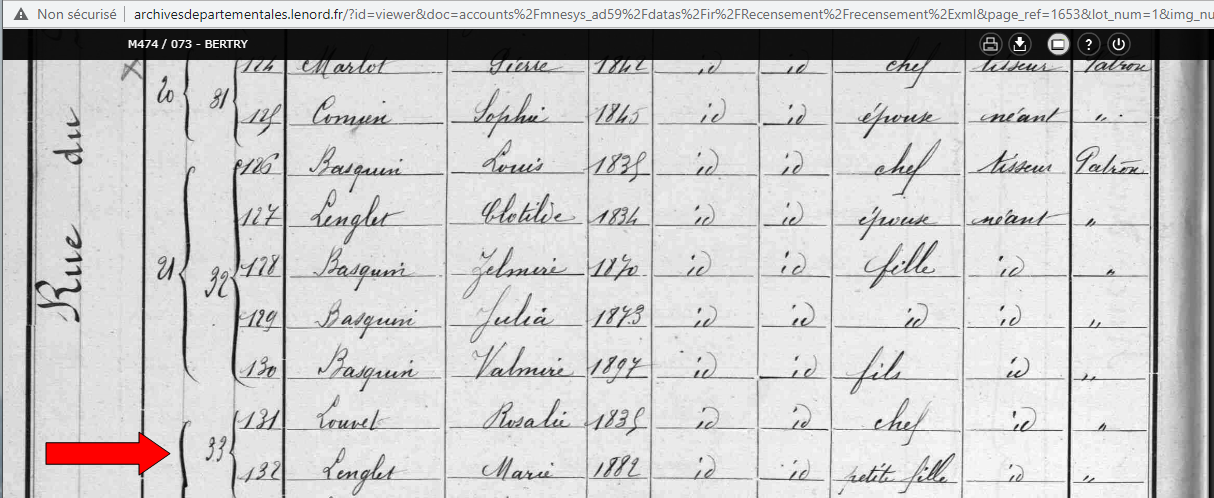 Non sécurisé | archivesdepartementales.lenord.fr/?id=viewer&doc=accounts%2Fmnesys_ad59%2Fdatas%2Fir%2FRecensement%2Frecensement%2Exml&page_ref=1653&lot_num=1&img_nu
M474 / 073 - BERTRY
Rue du
20 31 124 Marlot Pierre 1842 id id chef tisseur Patron
125 Sophie 1845 id id épouse néant "
21 32 126 Basquin Louis 1835 id id chef tisseur Patron
127 Lenglet Clotilde 1834 id id épouse néant "
128 Basquin Zelmire 1870 id id fille id "
129 Basquin Julia 1873 id id id id "
130 Basquin Valmire 1897 id id fils id "
33 131 Louvet Rosalie 1835 id id chef id "
132 Lenglet Marie 1882 id id petite fille id "